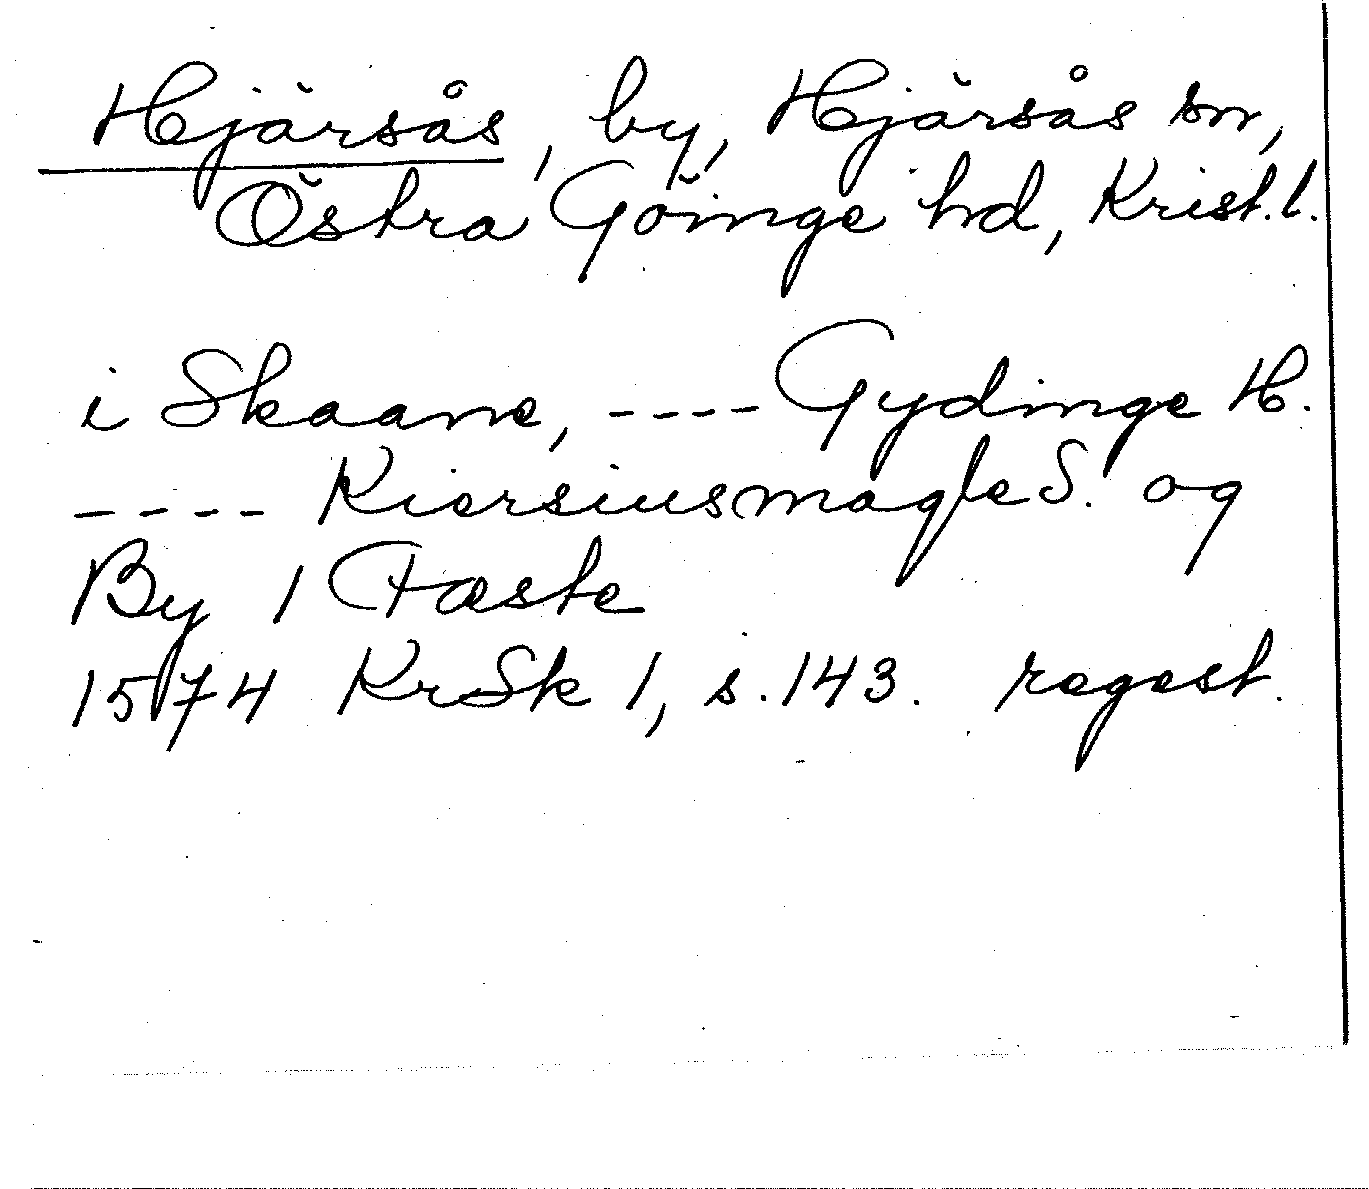 Hjärsås, by, Hjärsås sn,
Östra Göinge hd, Krist.l.
i Skaane, ---- Gydinge H.
---- Kiersiusmagle S. og
By 1 Fæste
1574 KrSk 1, s. 143. regest.